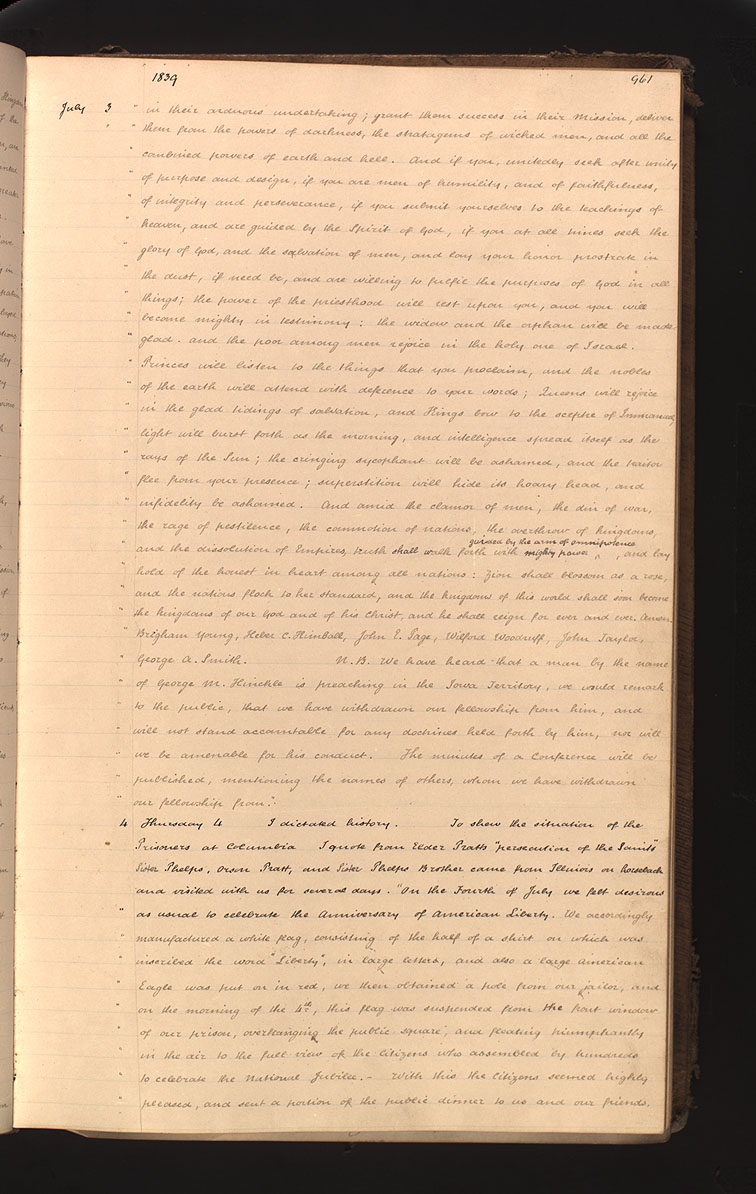 1839 961
July 3 " in their arduous undertaking; grant them success in their mission, deliver
" them from the powers of darkness, the stratagems of wicked men, and all the
" combined powers of earth and hell. And if you, unitedly seek after unity
" of purpose and design, if you are men of humility, and of faithfulness,
" of integrity and perseverance, if you submit yourselves to the teachings of
" heaven, and are guided by the Spirit of God, if you at all times seek the
" glory of God, and the salvation of men, and lay your honor prostrate in
" the dust, if need be, and are willing to fulfil the purposes of God in all
" things; the power of the priesthood will rest upon you, and you will
" become mighty in testimony: the widow and the orphan will be made
" glad. and the poor among men rejoice in the holy one of Israel.
" Princes will listen to the things that you proclaim, and the nobles
" of the earth will attend with deference to your words; Queens will rejoice
" in the glad tidings of salvation, and Kings bow to the sceptre of Immanuel,
" light will burst forth as the morning, and intelligence spread itself as the
" rays of the Sun; the cringing sycophant will be ashamed, and the traitor
" flee from your presence; superstition will hide its hoary head, and
" infidelity be ashamed. And amid the clamor of men, the din of war,
" the rage of pestilence, the commotion of nations, the overthrow of kingdoms,
guided by the arm of omnipotence
" and the dissolution of Empires, truth shall walk forth with mighty power, and lay
" hold of the honest in heart among all nations: Zion shall blossom as a rose,
" and the nations flock to her standard, and the kingdoms of this world shall soon become
" the kingdoms of our God and of his Christ, and he shall reign for ever and ever. Amen.
" Brigham Young, Heber C. Kimball, John E. Page, Wilford Woodruff, John Taylor,
" George A. Smith. N.B. We have heard that a man by the name
" of George M. Hinckle is preaching in the Iowa Territory, we would remark
" to the public, that we have withdrawn our fellowship from him, and
" will not stand accountable for any doctrines held forth by him, nor will
" we be amenable for his conduct. The minutes of a Conference will be
" published, mentioning the names of others, whom we have withdrawn
" our fellowship from."
4 Thursday 4 I dictated history. To show the situation of the
Prisoners at Columbia I quote from Elder Pratts "persecution of the Saints"
Sister Phelps, Orson Pratt, and Sister Phelps Brother came from Illinois on horseback
and visited with us for several days. "On the Fourth of July we felt desirous
" as usual to celebrate the Anniversary of American Liberty. We accordingly
" manufactured a white flag, consisting of the half of a shirt on which was
" inscribed the word "Liberty", in large letters, and also a large American
" Eagle was put on in red, we then obtained a pole from our jailor, and
" on the morning of the 4th, this flag was suspended from the front window
" of our prison, overhanging the public square, and floating triumphantly
" in the air to the full view of the Citizens who assembled by hundreds
" to celebrate the National Jubilee.- With this the Citizens seemed highly
" pleased, and sent a portion of the public dinner to us and our friends.